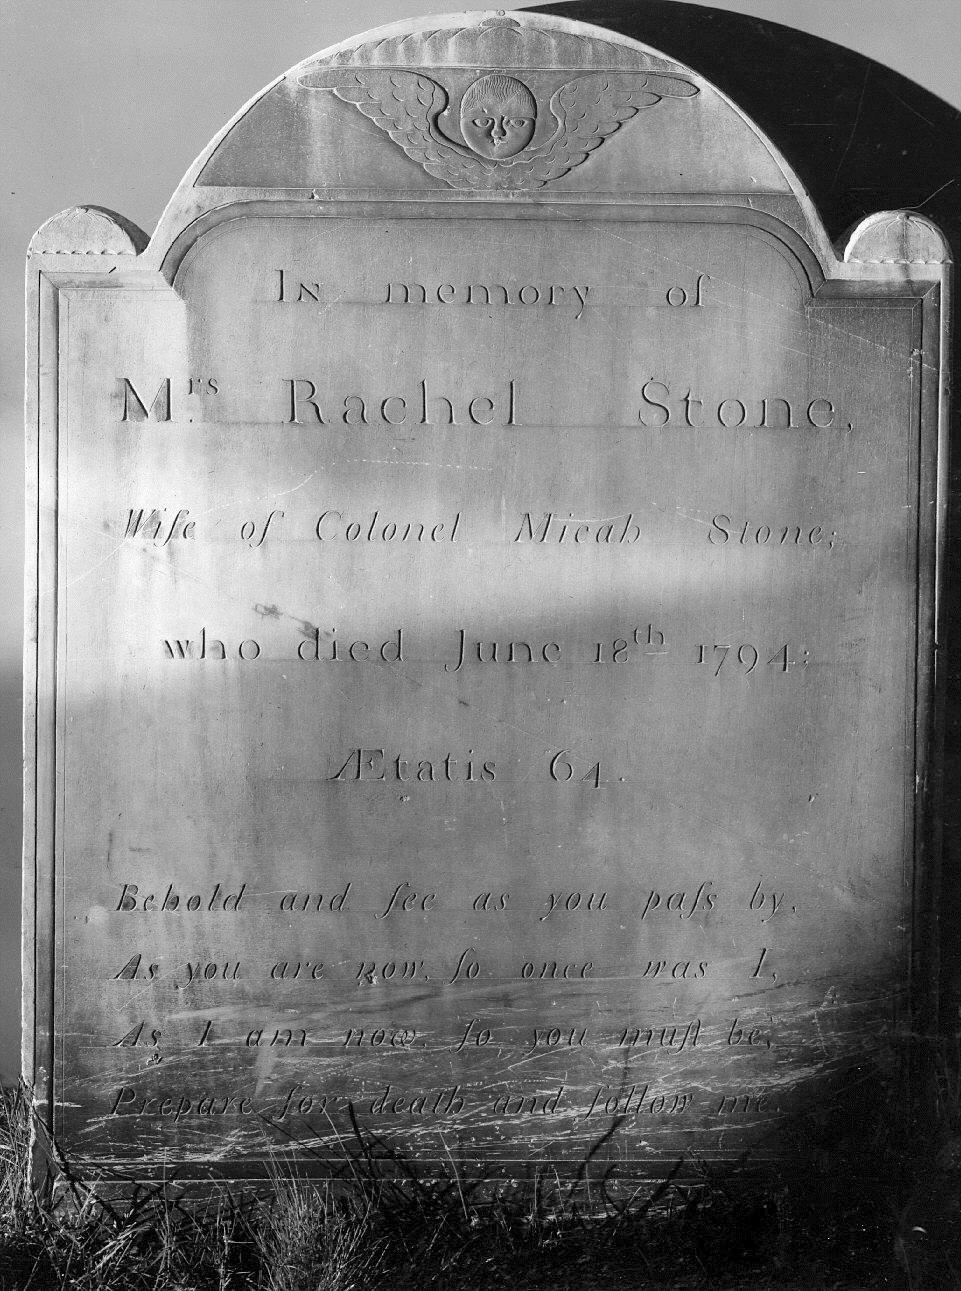 In memory of
Mrs. Rachel Stone,
Wife of Colonel Micah Stone;
who died June 18th 1794;
Ætatis 64.
Behold and ſee as you paſs by,
As you are now, ſo once was I,
As I am now, ſo you muſt be,
Prepare for death and follow me.